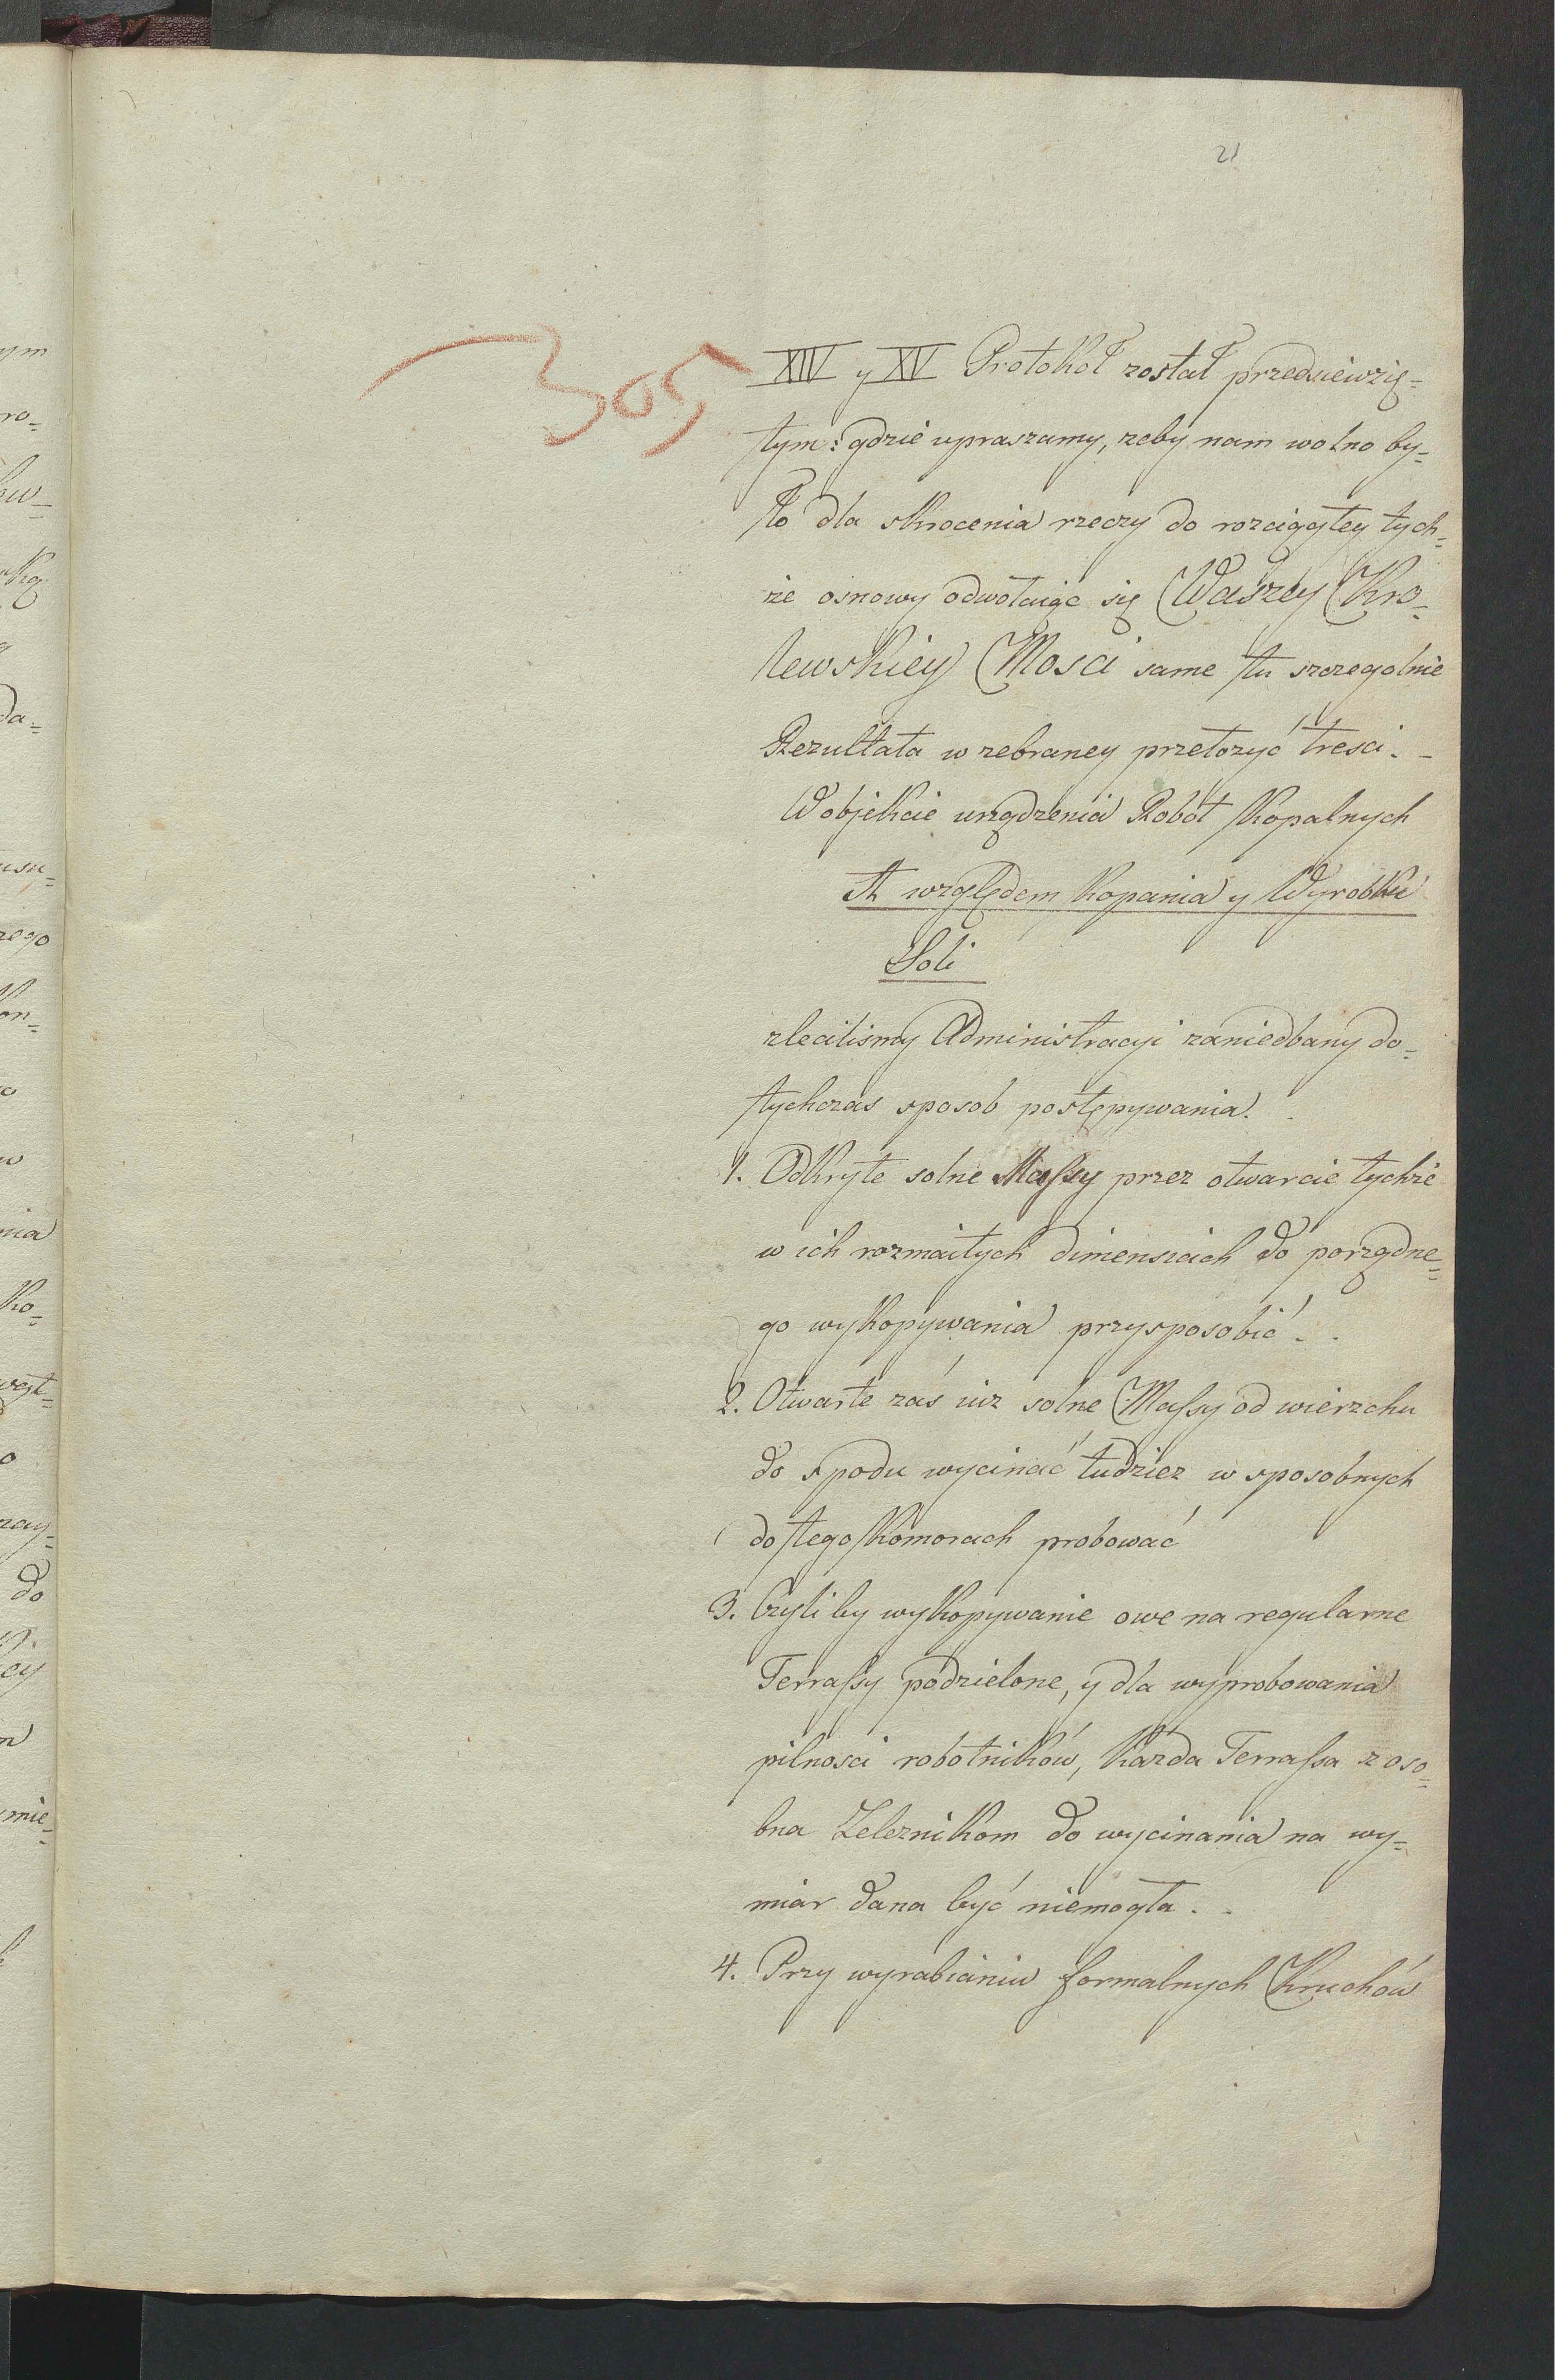 21
305
XIV y XV Protokoł został przedsiewzię=
tym: gdzie upraszamy, zeby nam wolno by=
ło dla skrocenia rzeczy do rozciągłey tych=
że osnowy odwołaiąc się Waszey Kro=
lewskiey Mosci same tu szczegolnie
Rezultata w zebraney przełozyć tresci.-
W objekcie urządzenia Robót Kopalnych
A względem Kopania y Wyrobku
Soli
zlecilismy Administracyi zaniedbany do=
tychczas sposob postępywania.
1. Odkryte solne Massy przez otwarcie tychże
w ich rozmaitych dimensiach do porządne=
go wykopywania przysposobić.
2. Otwarte zaś iuz solne Massy od wierzchu
do spodu wycinać tudziez w sposobnych
do tego Komorach probować
3. Czyli by wykopywanie owe na regularne
Terrassy podzielone, y dla wyprobowania
pilnosci robotników, każda Terrassa z oso=
bna Zeleznikom do wycinania na wy=
miar dana być niemogła.
4. Przy wyrabianiu formalnych Kruchów